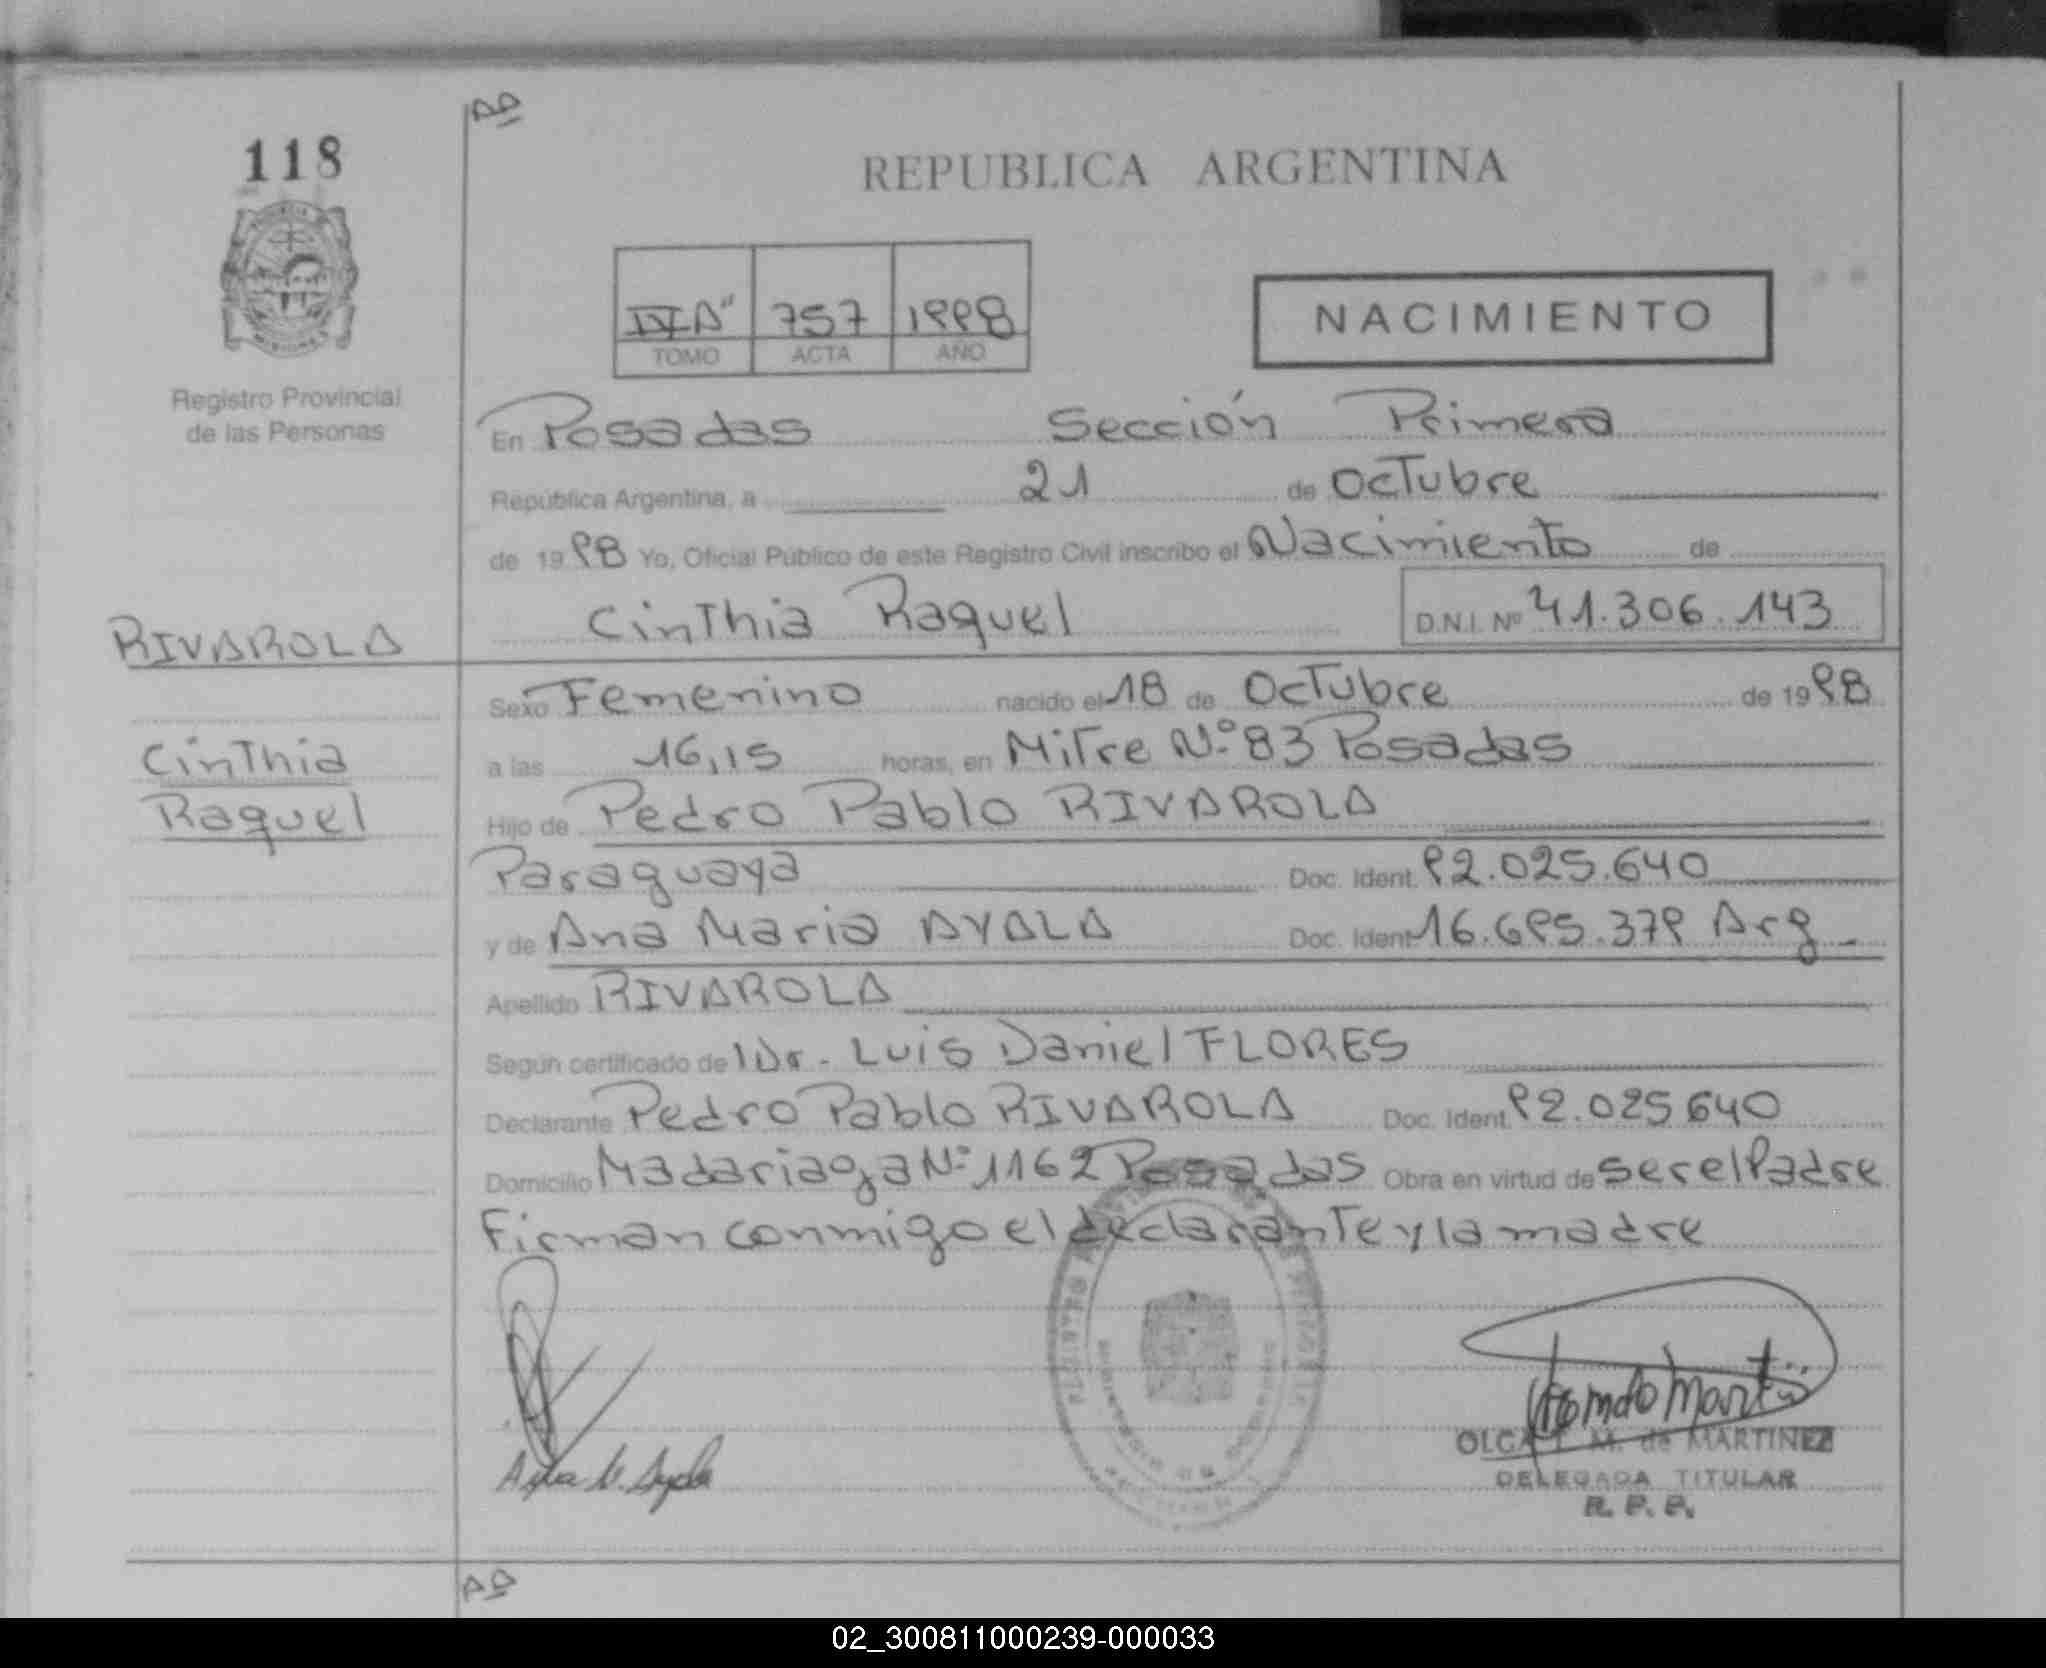 118
REPUBLICA ARGENTINA
757 1998
TOMO ACTA AÑO
NACIMIENTO
Registro Provincial
de las Personas
En Posadas Sección Primera
República Argentina, a 21 de Octubre
de 1998 Yo, Oficial Público de este Registro Civil inscribo el Nacimiento de
Cinthia Raquel D.N.I. Nº 41.306.143
RIVAROLA
Cinthia
Raquel
Sexo Femenino nacido el 18 de Octubre de 1998
a las 16,15 horas, en Mitre Nº 83 Posadas
Hijo de Pedro Pablo RIVAROLA
Paraguaya Doc. Ident. 92.025.640
y de Ana Maria AYALA Doc. Ident 16.695.379 Arg
Apellido RIVAROLA
Según certificado de l Dr. Luis Daniel FLORES
Declarante Pedro Pablo RIVAROLA Doc. Ident. 92.025640
Domicilio Madariaga Nº 1162 Posadas Obra en virtud de ser el Padre
Firman conmigo el declarante y la madre
OLGA M. de MARTINEZ
DELEGADA TITULAR
R. P. P.
02_300811000239-000033